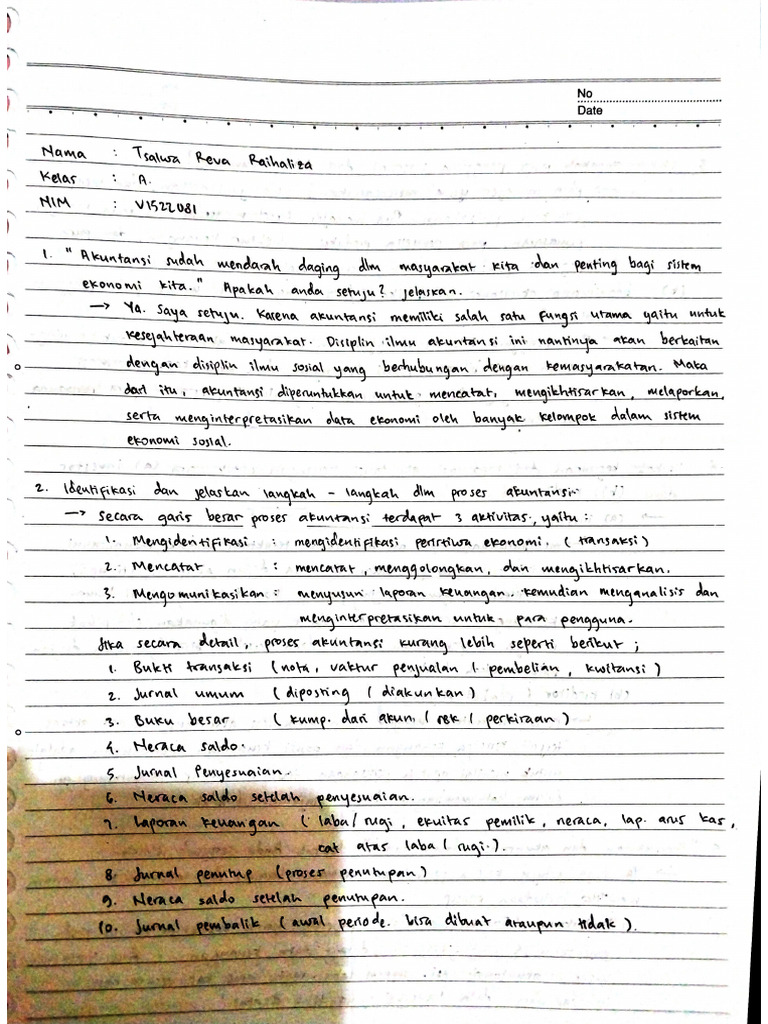 No
Date
Nama : Tsalwa Reva Raihaliza
Kelas : A.
NIM : V1522081
1. "Akuntansi sudah mendarah daging dlm masyarakat kita dan penting bagi sistem
ekonomi kita." Apakah anda setuju? jelaskan.
→ Ya. Saya setuju. Karena akuntansi memiliki salah satu fungsi utama yaitu untuk
kesejahteraan masyarakat. Disiplin ilmu akuntansi ini nantinya akan berkaitan
dengan disiplin ilmu sosial yang berhubungan dengan kemasyarakatan. Maka
dari itu, akuntansi diperuntukkan untuk mencatat, mengikhtisarkan, melaporkan,
serta menginterpretasikan data ekonomi oleh banyak kelompok dalam sistem
ekonomi sosial.
2. Identifikasi dan jelaskan langkah - langkah dlm proses akuntansi.
→ secara garis besar proses akuntansi terdapat 3 aktivitas, yaitu :
1. Mengidentifikasi : mengidentifikasi peristiwa ekonomi. (transaksi)
2. Mencatat : mencatat, menggolongkan, dan mengikhtisarkan.
3. Mengomunikasikan : menyusun laporan keuangan. kemudian menganalisis dan
menginterpretasikan untuk para pengguna.
Jika secara detail, proses akuntansi kurang lebih seperti berikut ;
1. Bukti transaksi (nota, vaktur penjualan / pembelian, kwitansi)
2. Jurnal umum (diposting / diakunkan)
3. Buku besar (kump. dari akun / rek / perkiraan)
4. Neraca saldo.
5. Jurnal Penyesuaian.
6. Neraca saldo setelah penyesuaian.
7. Laporan keuangan (laba/rugi, ekuitas pemilik, neraca, lap. arus kas,
cat atas laba/rugi.).
8. Jurnal penutup (proses penutupan)
9. Neraca saldo setelah penutupan.
10. Jurnal pembalik (awal periode. bisa dibuat ataupun tidak).